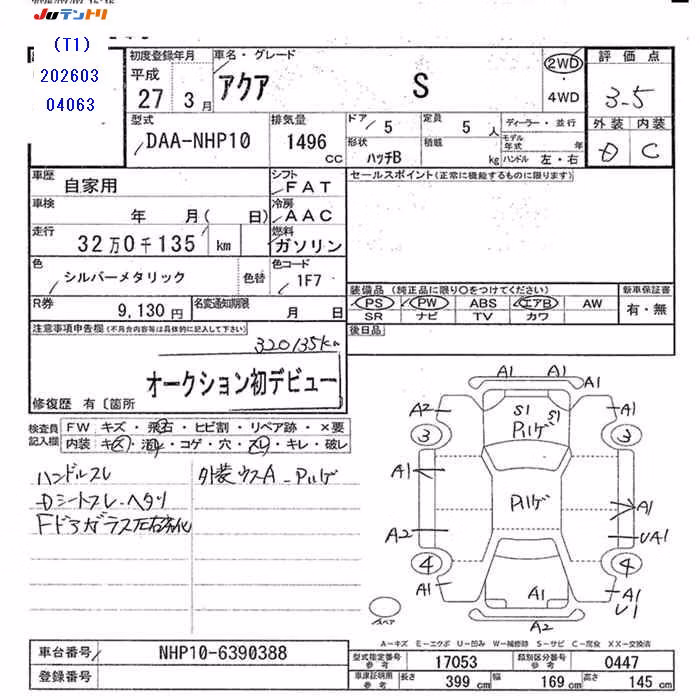 Juテントリ
(T1)
202603
04063
初度登録年月
平成
27 3月
車名・グレード
アクア S
2WD
4WD
評価点
3.5
外装 内装
D C
型式
DAA-NHP10
排気量
1496 CC
ドア 5
定員 5 人
形状
ハッチB
積載 kg
ディーラー・並行
モデル年式 年
ハンドル 左・右
車歴
自家用
シフト
FAT
車検
年 月( 日)
冷房
AAC
走行
32万0千135 km
燃料
ガソリン
色
シルバーメタリック
色替
色コード
1F7
R券
9,130円
名変通知期限
月 日
セールスポイント(正常に機能するものに限ります)
装備品(純正品に限り○をつけてください)
PS PW ABS エアB AW
SR ナビ TV カワ
新車保証書
有・無
後日品
注意事項申告欄(不具合内容等は具体的に記入して下さい)
320135km
オークション初デビュー
修復歴 有〔箇所
検査員記入欄
FW キズ・飛石・ヒビ割・リペア跡・×要
内装:キズ・汚れ・コゲ・穴・スレ・キレ・破レ
ハンドルスレ
Dシートスレ・ヘタリ
Fドアガラス左右劣化
外装ウスA
A1 A1
A1 A1
A2 S1 S1 A1
3 3
A1 A1
A2 UA1
4 4
A1 A1 A1
U1
A2
スペア
A-キズ E-エクボ U-凹み W-補修跡 S-サビ C-腐食 XX-交換済
車台番号
NHP10-6390388
登録番号
型式指定番号 参考 17053
類別区分番号 参考 0447
車庫証明用 参考 長さ 399 cm 幅 169 cm 高さ 145 cm